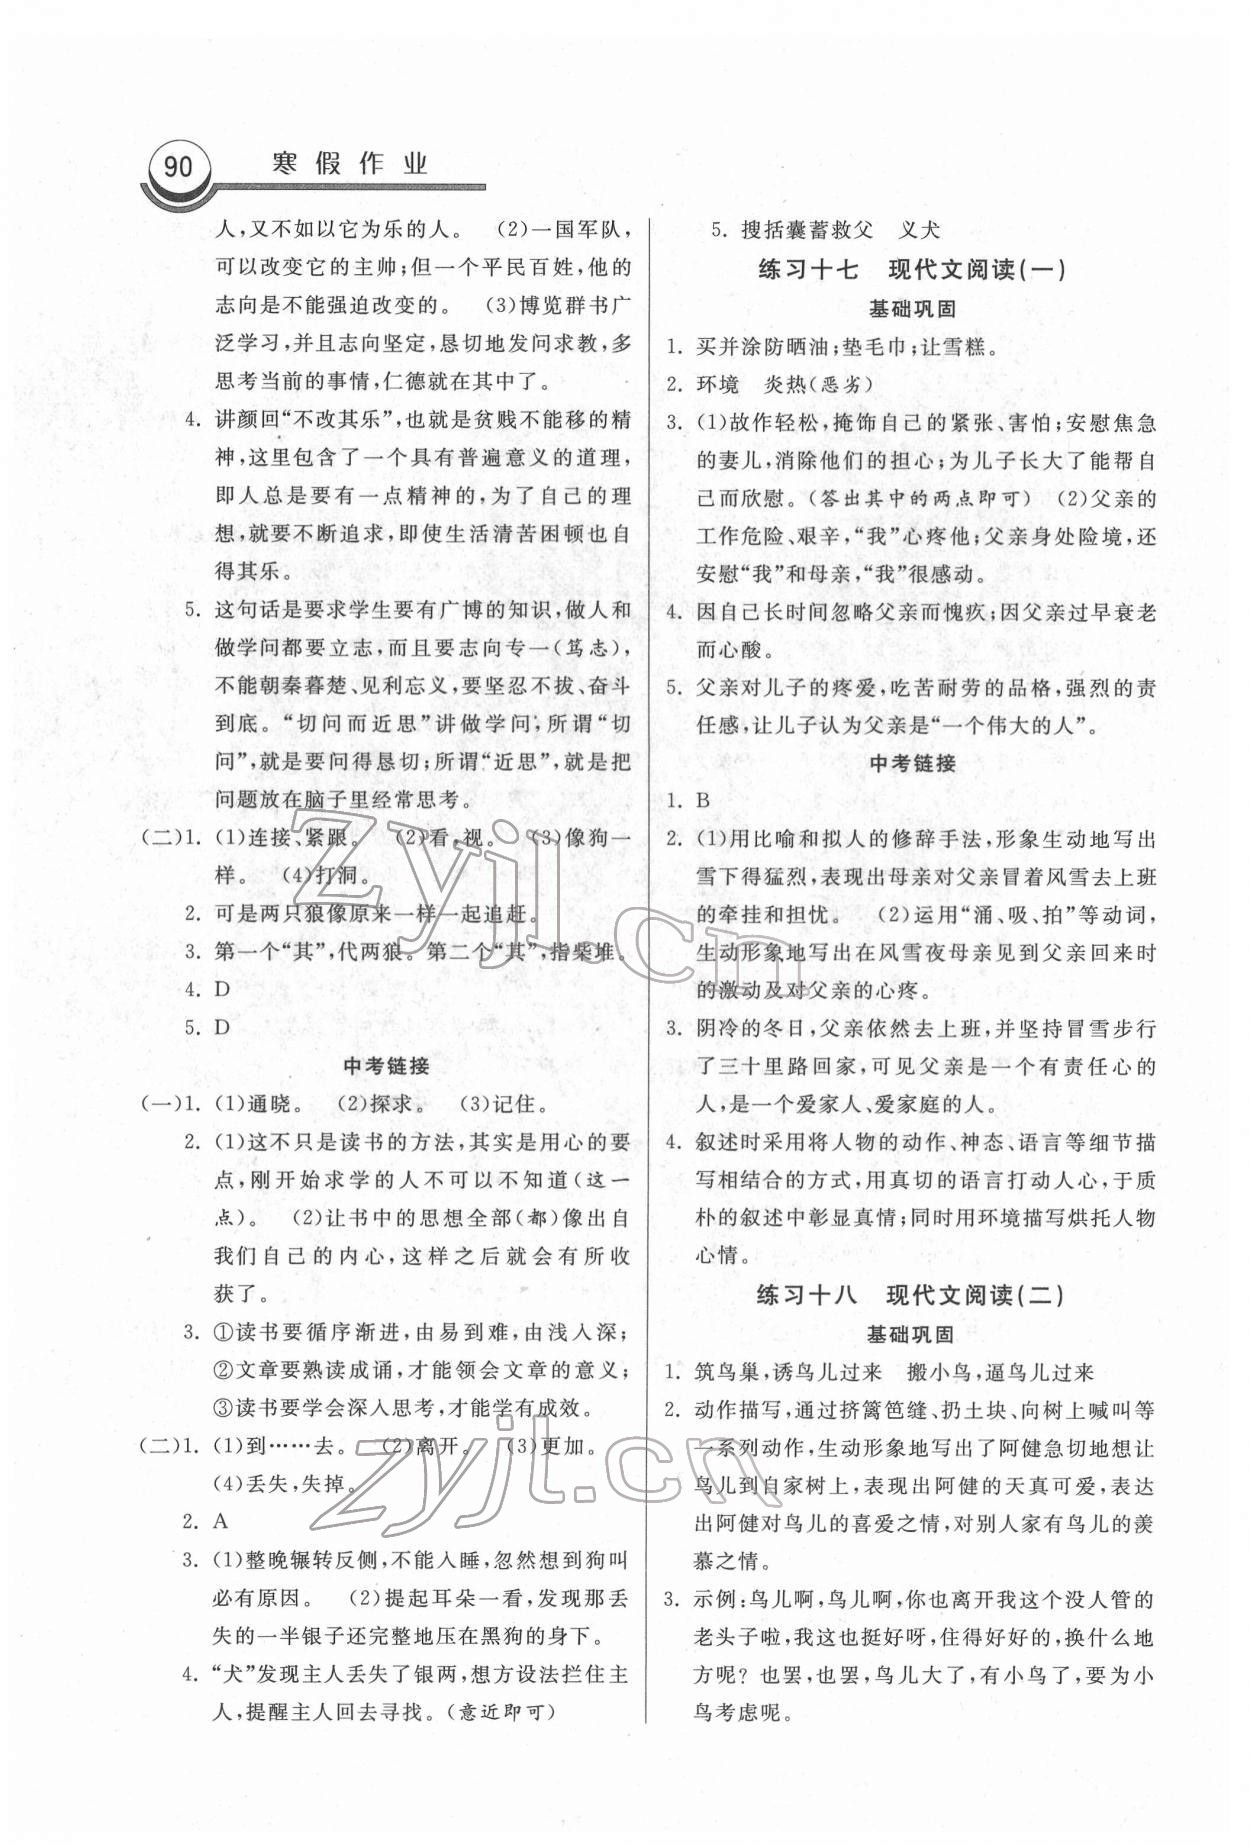 90
寒假作业
人,又不如以它为乐的人。 (2)一国军队,
可以改变它的主帅;但一个平民百姓,他的
志向是不能强迫改变的。 (3)博览群书广
泛学习,并且志向坚定,恳切地发问求教,多
思考当前的事情,仁德就在其中了。
4. 讲颜回“不改其乐”,也就是贫贱不能移的精
神,这里包含了一个具有普遍意义的道理,
即人总是要有一点精神的,为了自己的理
想,就要不断追求,即使生活清苦困顿也自
得其乐。
5. 这句话是要求学生要有广博的知识,做人和
做学问都要立志,而且要志向专一(笃志),
不能朝秦暮楚、见利忘义,要坚忍不拔、奋斗
到底。“切问而近思”讲做学问,所谓“切
问”,就是要问得恳切;所谓“近思”,就是把
问题放在脑子里经常思考。
(二)1. (1)连接、紧跟。 (2)看,视。 (3)像狗一
样。 (4)打洞。
2. 可是两只狼像原来一样一起追赶。
3. 第一个“其”,代两狼。第二个“其”,指柴堆。
4. D
5. D
中考链接
(一)1. (1)通晓。 (2)探求。 (3)记住。
2. (1)这不只是读书的方法,其实是用心的要
点,刚开始求学的人不可以不知道(这一
点)。 (2)让书中的思想全部(都)像出自
我们自己的内心,这样之后就会有所收
获了。
3. ①读书要循序渐进,由易到难,由浅入深;
②文章要熟读成诵,才能领会文章的意义;
③读书要学会深入思考,才能学有成效。
(二)1. (1)到……去。 (2)离开。 (3)更加。
(4)丢失,失掉。
2. A
3. (1)整晚辗转反侧,不能入睡,忽然想到狗叫
必有原因。 (2)提起耳朵一看,发现那丢
失的一半银子还完整地压在黑狗的身下。
4. “犬”发现主人丢失了银两,想方设法拦住主
人,提醒主人回去寻找。(意近即可)
5. 搜括囊蓄救父 义犬
练习十七 现代文阅读(一)
基础巩固
1. 买并涂防晒油;垫毛巾;让雪糕。
2. 环境 炎热(恶劣)
3. (1)故作轻松,掩饰自己的紧张、害怕;安慰焦急
的妻儿,消除他们的担心;为儿子长大了能帮自
己而欣慰。(答出其中的两点即可) (2)父亲的
工作危险、艰辛,“我”心疼他;父亲身处险境,还
安慰“我”和母亲,“我”很感动。
4. 因自己长时间忽略父亲而愧疚;因父亲过早衰老
而心酸。
5. 父亲对儿子的疼爱,吃苦耐劳的品格,强烈的责
任感,让儿子认为父亲是“一个伟大的人”。
中考链接
1. B
2. (1)用比喻和拟人的修辞手法,形象生动地写出
雪下得猛烈,表现出母亲对父亲冒着风雪去上班
的牵挂和担忧。 (2)运用“涌、吸、拍”等动词,
生动形象地写出在风雪夜母亲见到父亲回来时
的激动及对父亲的心疼。
3. 阴冷的冬日,父亲依然去上班,并坚持冒雪步行
了三十里路回家,可见父亲是一个有责任心的
人,是一个爱家人、爱家庭的人。
4. 叙述时采用将人物的动作、神态、语言等细节描
写相结合的方式,用真切的语言打动人心,于质
朴的叙述中彰显真情;同时用环境描写烘托人物
心情。
练习十八 现代文阅读(二)
基础巩固
1. 筑鸟巢,诱鸟儿过来 搬小鸟,逼鸟儿过来
2. 动作描写,通过挤篱笆缝、扔土块、向树上喊叫等
一系列动作,生动形象地写出了阿健急切地想让
鸟儿到自家树上,表现出阿健的天真可爱,表达
出阿健对鸟儿的喜爱之情,对别人家有鸟儿的羡
慕之情。
3. 示例:鸟儿啊,鸟儿啊,你也离开我这个没人管的
老头子啦,我这也挺好呀,住得好好的,换什么地
方呢?也罢,也罢,鸟儿大了,有小鸟了,要为小
鸟考虑呢。
zyjl.cn
zyjl.cn